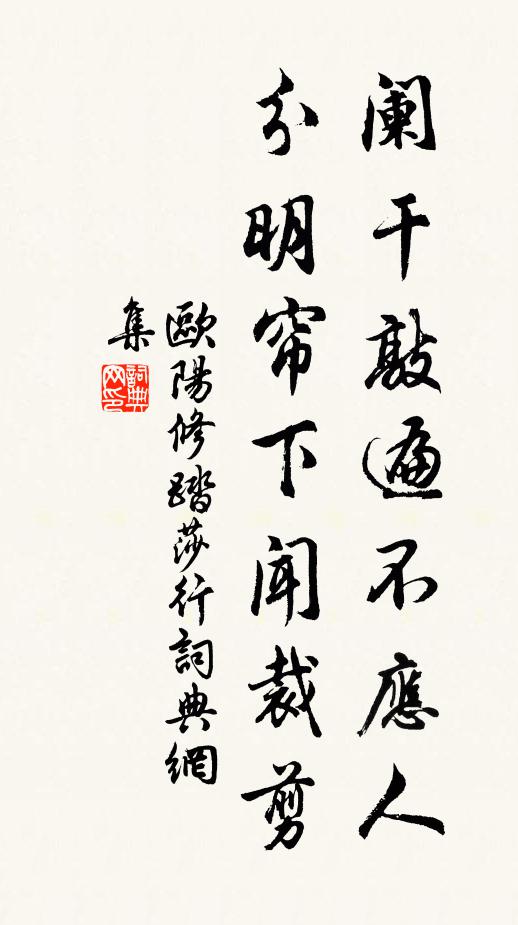 阑干敲遍不應人
分明帘下闻裁剪
歐陽修踏莎行詞典網
集
詞典网印